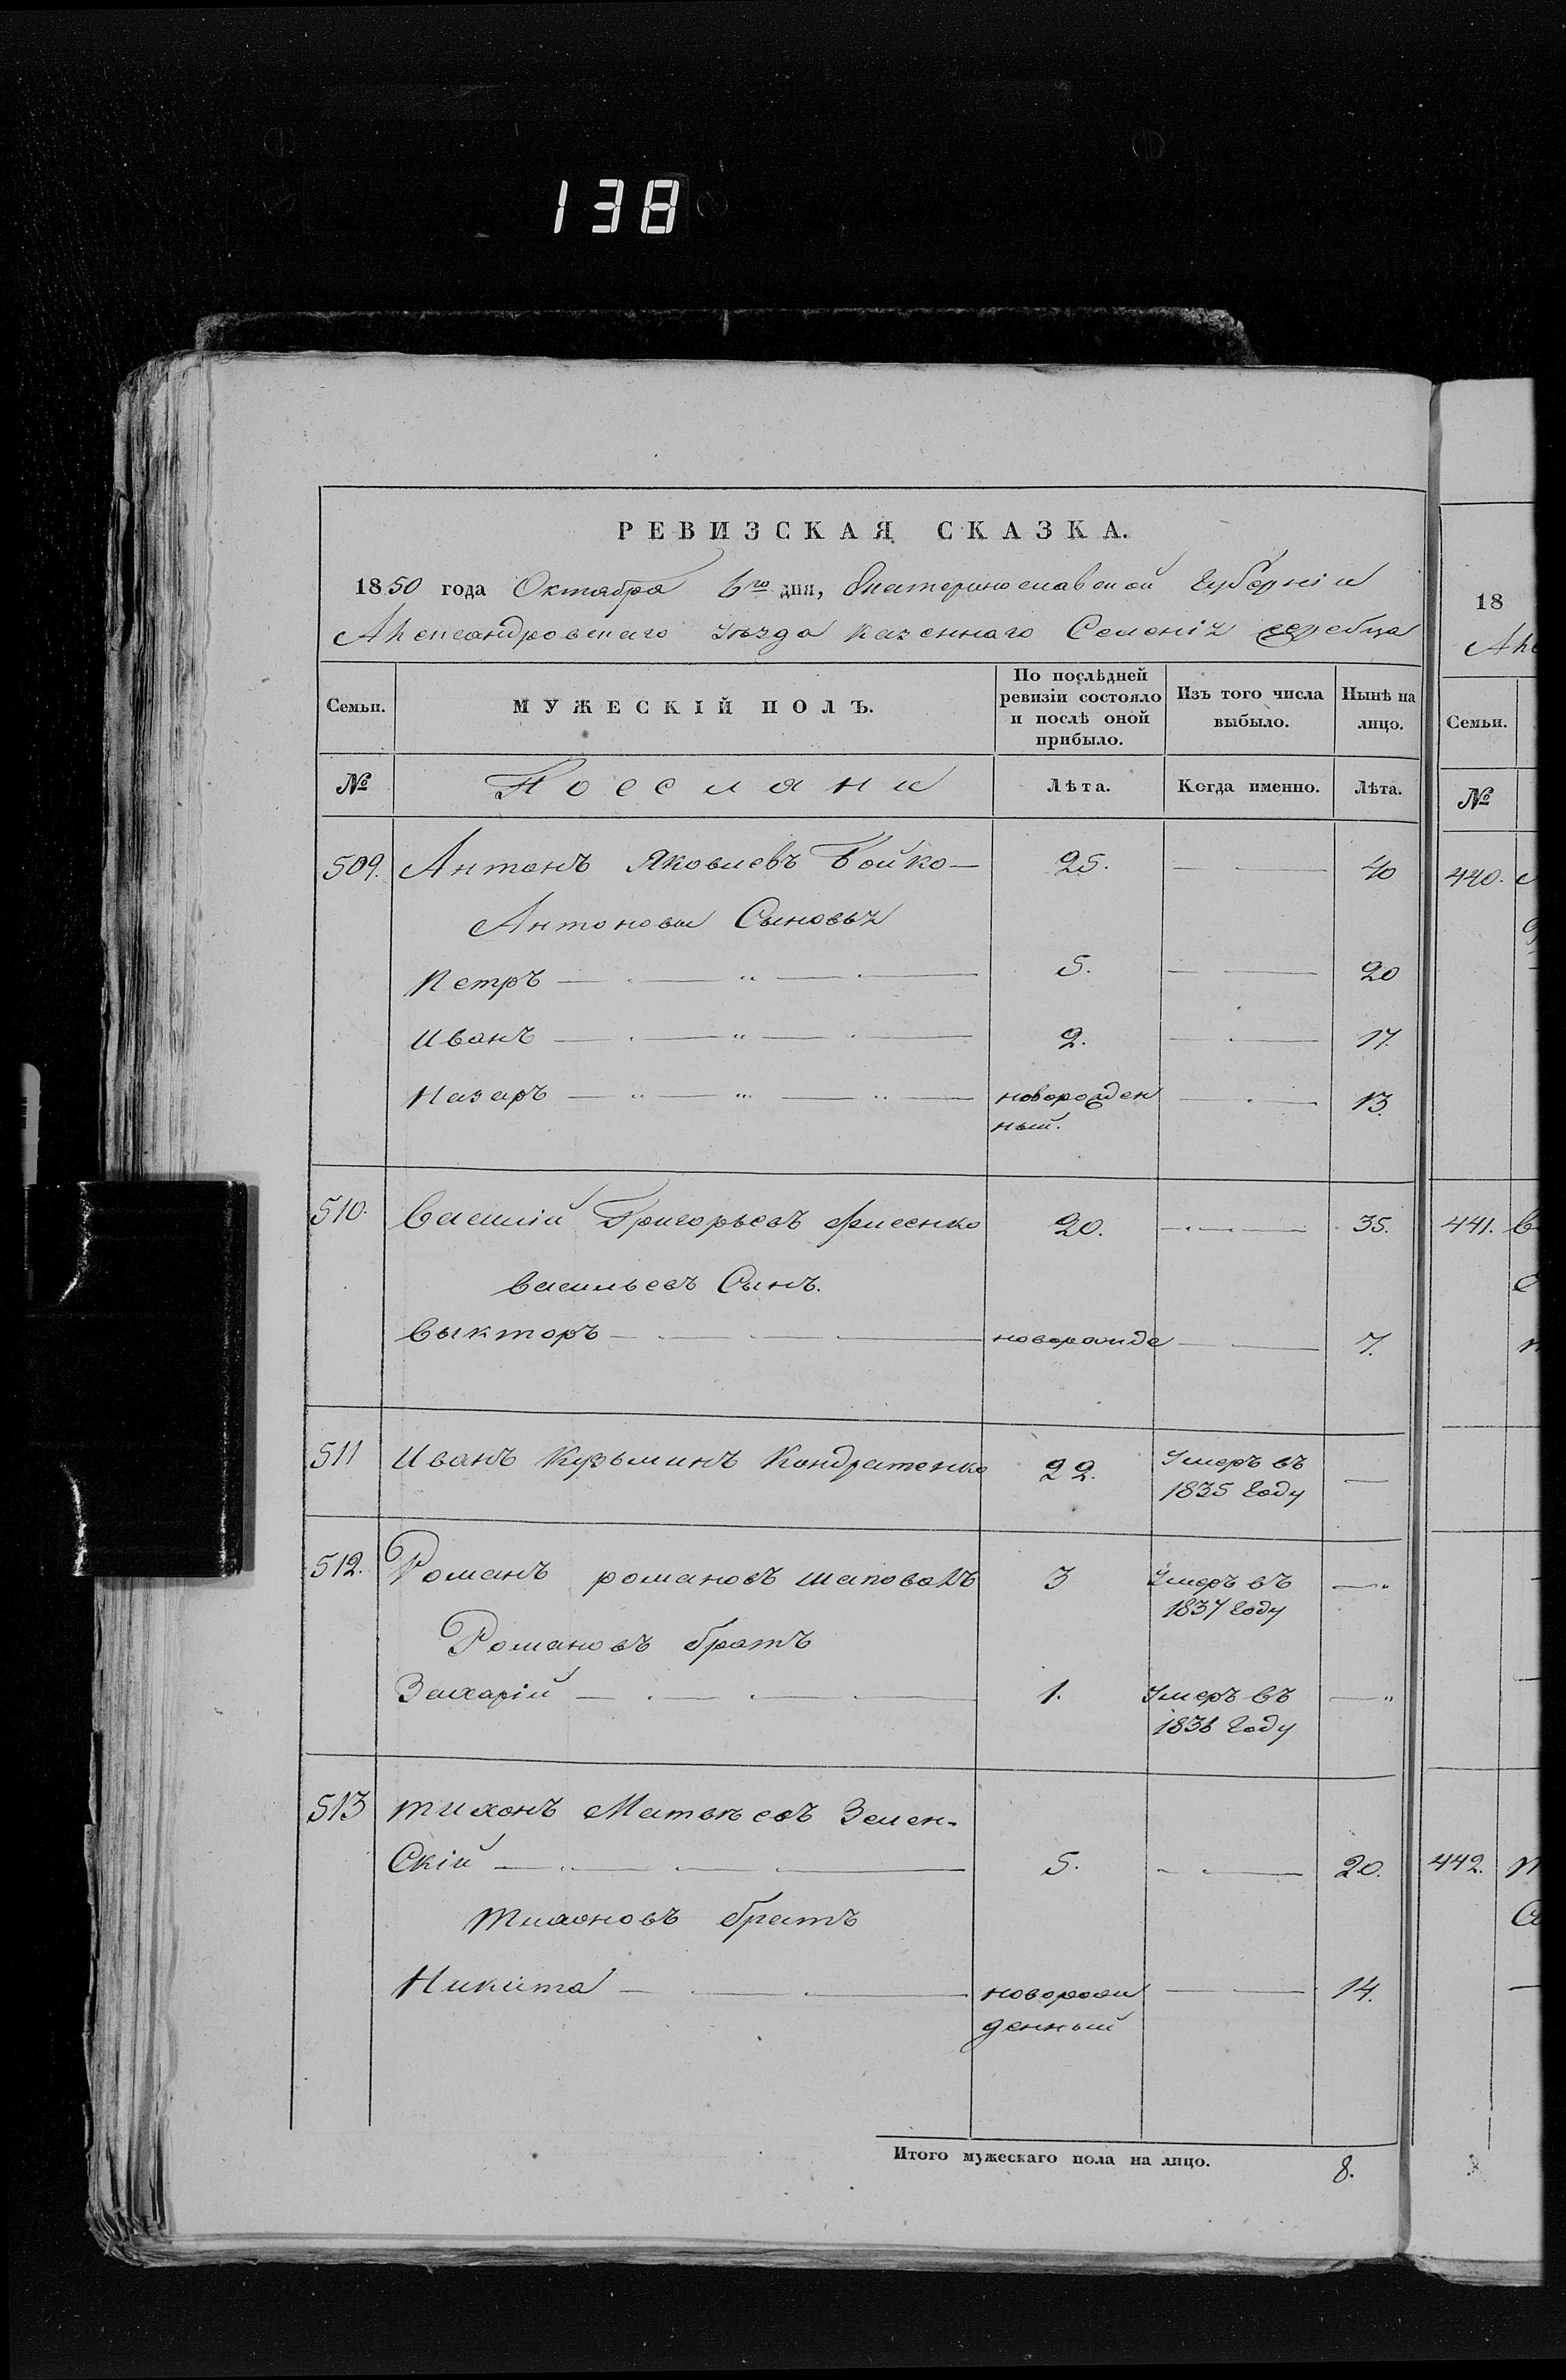 138
РЕВИЗСКАЯ СКАЗКА.
1850 года Октября 6го дня, Екатеринославской Губерніи
Александровскаго уезда казеннаго Селенія жеребца
Семьи. МУЖЕСКІЙ ПОЛЪ. По послѣдней ревизіи состояло и послѣ оной прибыло. Изъ того числа выбыло. Нынѣ на лицо.
№ Поселяни Лѣта. Когда именно. Лѣта.
509. Антонъ Яковлевъ Бойко — 25. — 40
Антоновы Сыновья
Петръ — 5. — 20
Иванъ — 2. — 17.
Назаръ — новорожден — 13.
ный.
510. Василій Григорьевъ 20. — 35.
Васильевъ Сынъ.
Выкторъ — новорожде — 7.
511 Иванъ Кузьминъ Кондратенко 22. Умеръ въ —
1835 году
512. Романъ романовъ шаповалъ 3 Умеръ въ —
1837 году
Романовъ братъ
Захарій — 1. Умеръ въ —
1836 году
513 тихонъ Матвѣевъ Зелен-
Скій — 5. — 20.
тихоновъ братъ
Никита — новорож — 14.
денный
Итого мужескаго пола на лицо. 8.
18
Але
Семьи.
№
440.
441.
442.